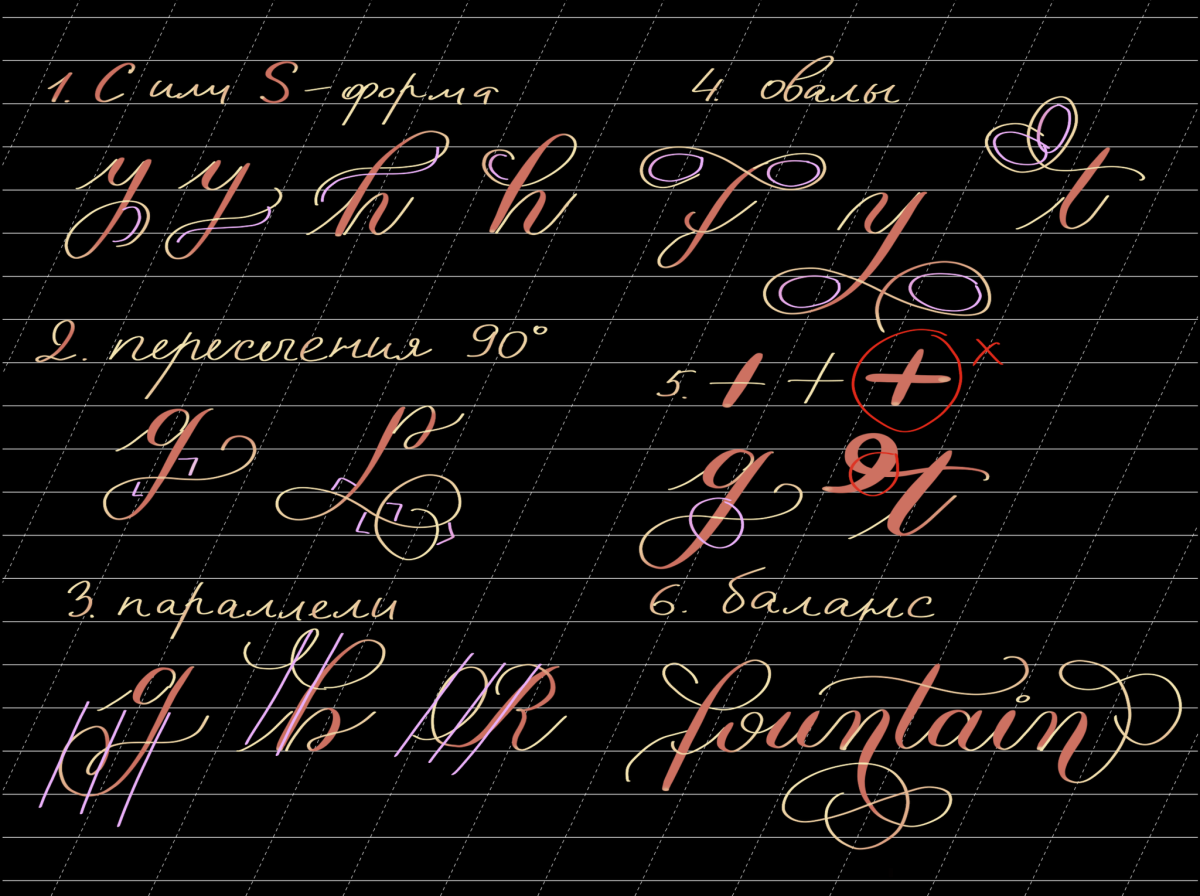 1. С или S-форма
y y h h
2. пересечения 90°
g
3. параллели
g R
4. овалы
y t
5. + + + x
g t
6. баланс
fountain